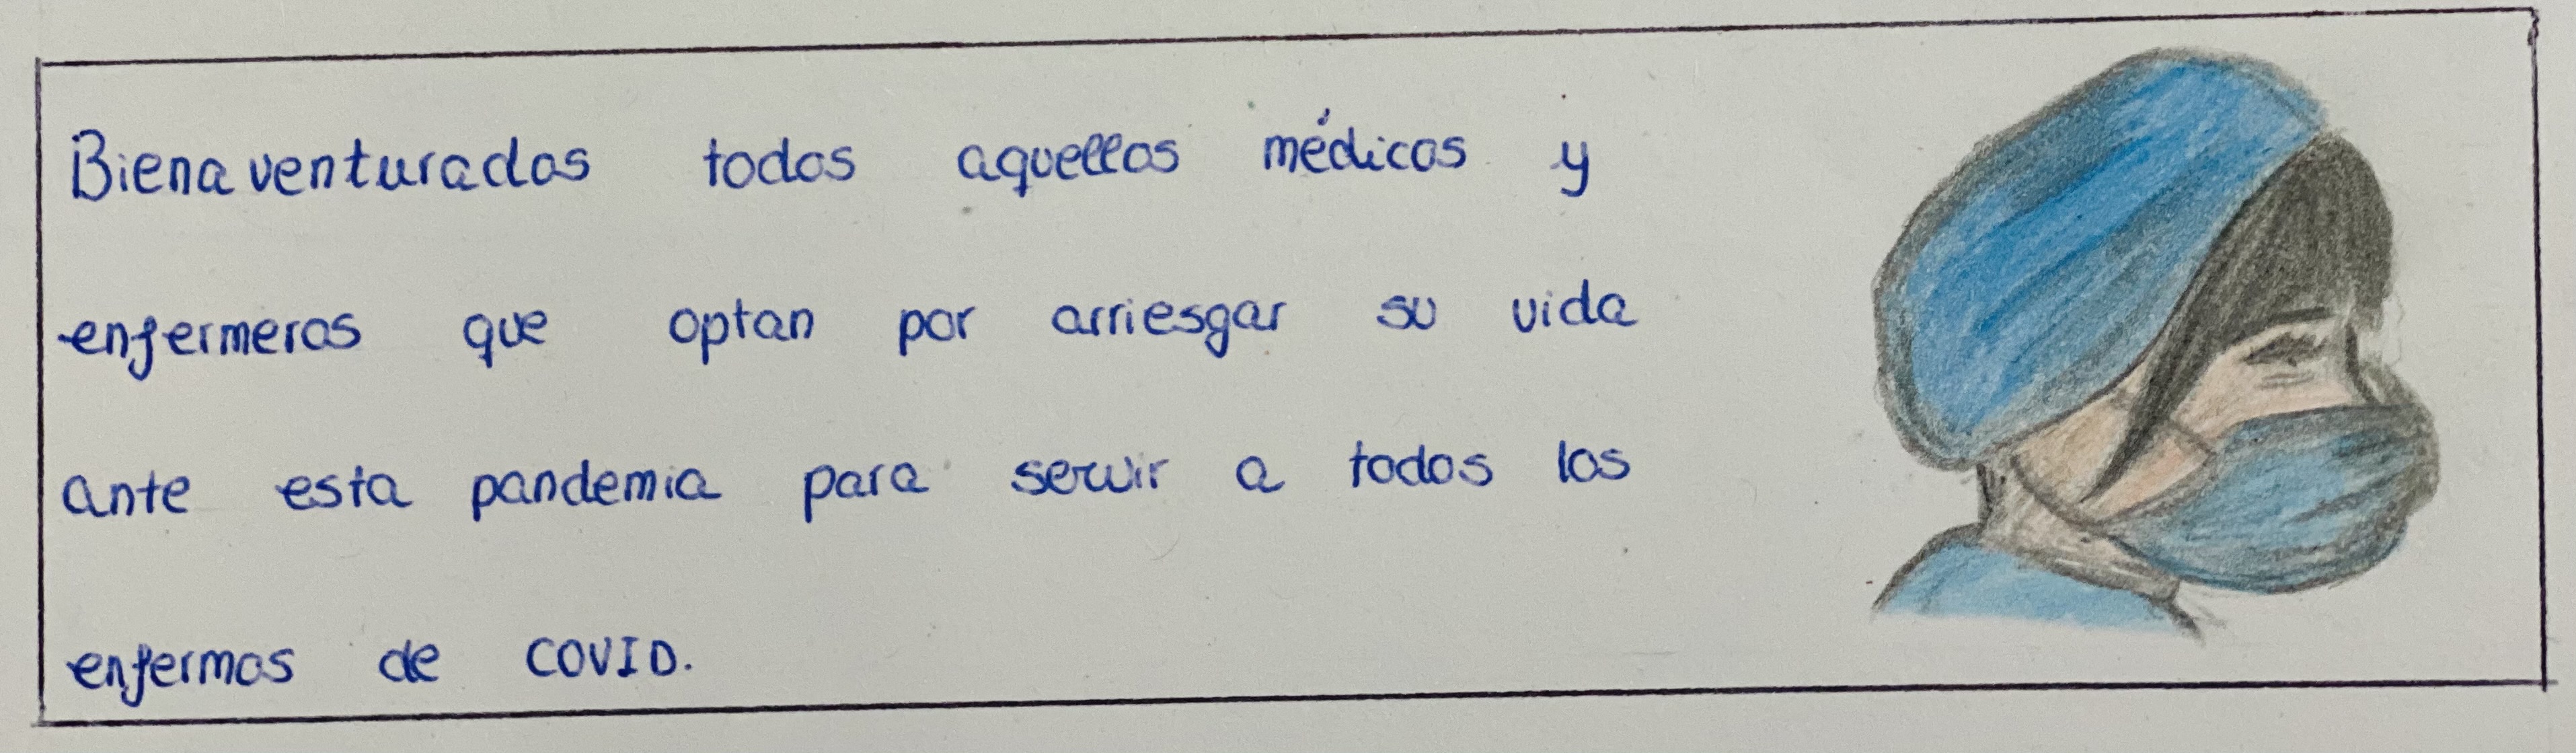 Bienaventurados todos aquellos médicos y
enfermeros que optan por arriesgar su vida
ante esta pandemia para servir a todos los
enfermos de COVID.